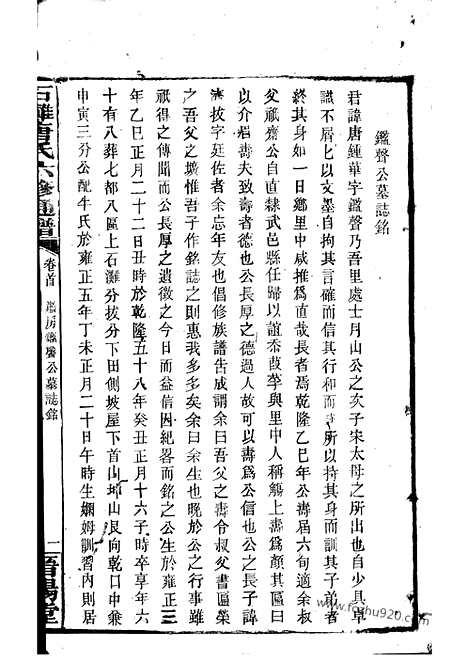 鑑聲公墓誌銘
君諱唐鍾華字鑑聲乃吾里處士月山公之次子宋太母之所出也自少具卓
識不屑屑以文墨自拘其言確而信其行和而 所以持其身而訓其子弟者
終其身如一日鄉里中咸推為直哉長者焉乾隆乙巳年公壽届六旬適余叔
父祇齋公自直隸武邑縣任歸以誼忝葭莩與里中人稱觴上壽為顏其匾曰
以介眉壽夫致壽者德也公長厚之德過人故可以壽為公信也公之長子諱
 拔字廷佐者余忘年友也倡修族譜告成謂余曰吾父之壽令叔父書匾榮
之吾父之壙惟吾子作銘誌之則惠我多多矣余曰余生也晚於公之行事雖
祇得之傳聞而公長厚之遺徵之今日而益信因紀畧而銘之公生於雍正三
年乙巳正月二十二日丑時於乾隆五十八年癸丑正月十六子時卒享年六
十有八葬七都八區上石灘分拔分下田側坡屋下首山 山艮向乾口中兼
申寅三分公配牛氏於雍正五年丁未正月二十日午時生嫻姆訓習內則居
石灘唐氏六修通譜
卷首
鑑房鑑聲公墓誌銘
二
晉陽堂
www.fozhu920.com